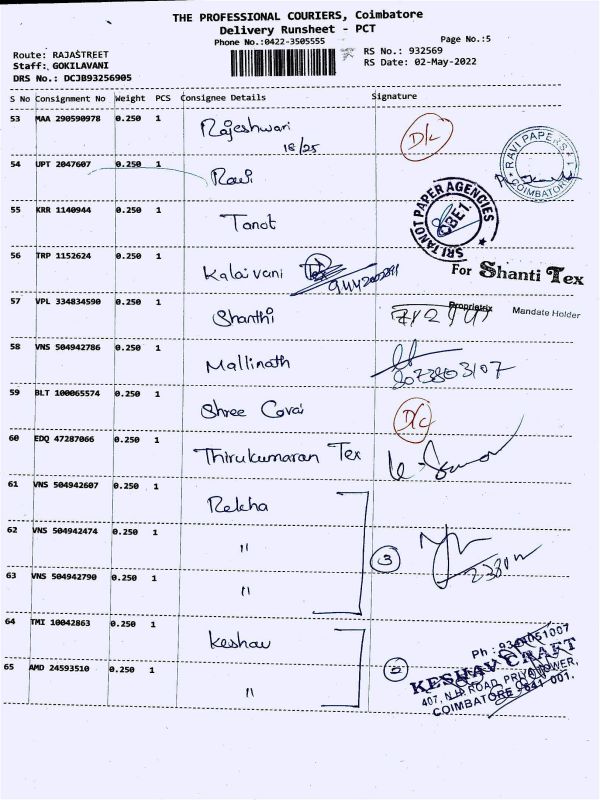 THE PROFESSIONAL COURIERS, Coimbatore
Delivery Runsheet - PCT
Phone No.:0422-3505555
Page No.:5
Route: RAJASTREET
RS No.: 932569
Staff: GOKILAVANI
RS Date: 02-May-2022
DRS No.: DCJB93256905
S No Consignment No Weight PCS Consignee Details Signature
53 MAA 290590978 0.250 1 Rajeshwari D/c
18/25
RAVI PAPERS
COIMBATORE
54 UPT 2047607 0.250 1 Ravi
55 KRR 1140944 0.250 1 Tanot
SRI TANOT PAPER AGENCIES
CBE1
56 TRP 1152624 0.250 1 Kalaivani Tex
For Shanti Tex
57 VPL 334834590 0.250 1 Shanthi
Propriatrix Mandate Holder
58 VNS 504942786 0.250 1 Mallinath
8073803107
59 BLT 100065574 0.250 1 Shree Covai D/c
60 EDQ 47287066 0.250 1 Thirukumaran Tex
61 VNS 504942607 0.250 1 Rekha
62 VNS 504942474 0.250 1 " 3
63 VNS 504942790 0.250 1 "
64 TMI 10042863 0.250 1 Keshav
65 AMD 24593510 0.250 1 " 2
KESHAV CRAFT
407, N.H. ROAD, PRIYA TOWER,
COIMBATORE - 641 001.